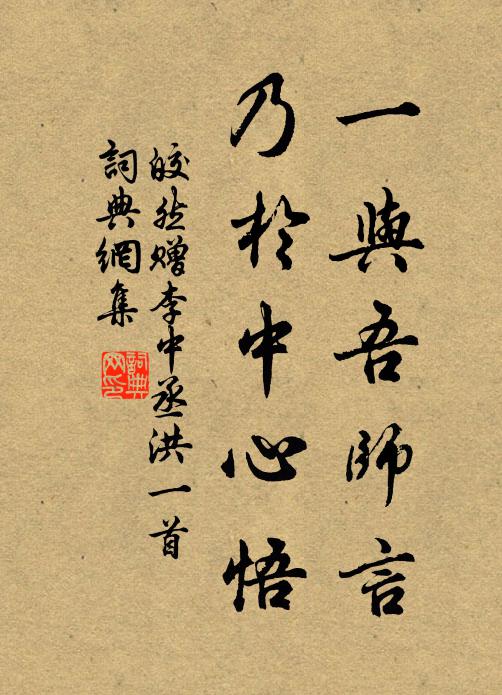 一與吾師言
乃於中心悟
皎然贈李中丞洪一首
詞典網集
詞典網印